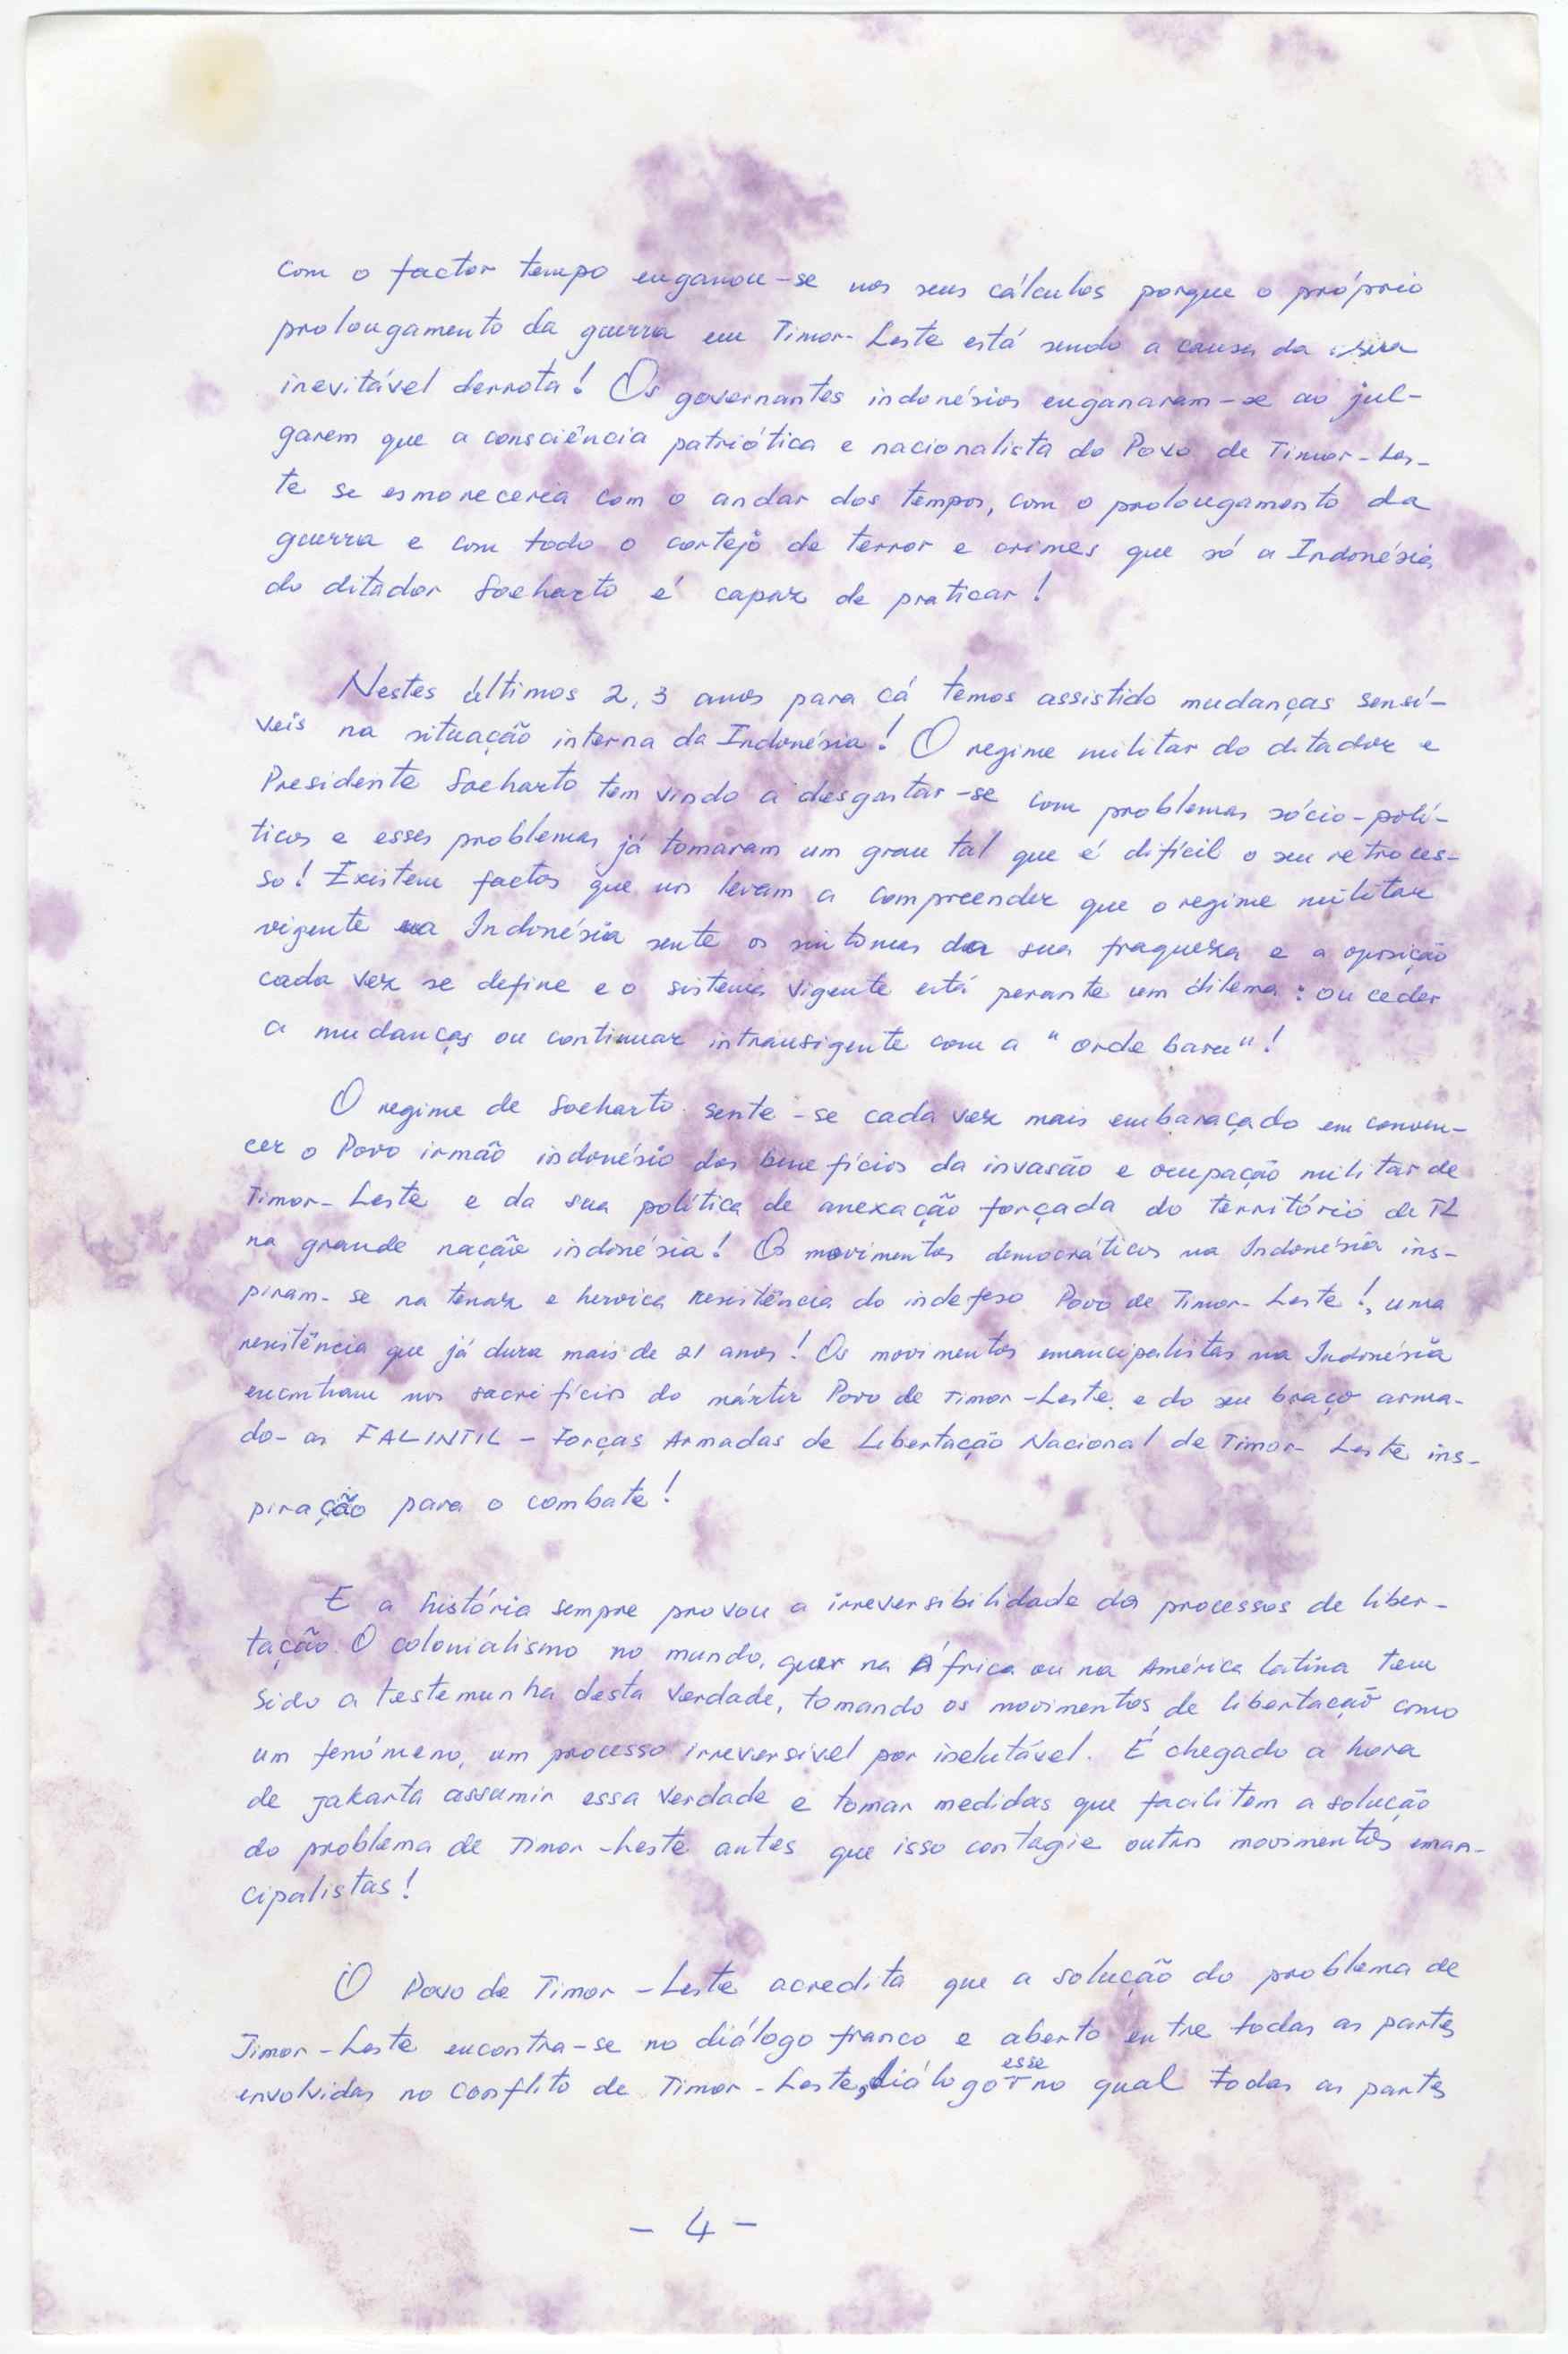 com o factor tempo enganou-se nos seus cálculos porque o próprio
prolongamento da guerra em Timor-Leste está sendo a causa da sua
inevitável derrota! Os governantes indonésios enganaram-se ao jul-
garem que a consciência patriótica e nacionalista do Povo de Timor-Les-
te se esmoreceria com o andar dos tempos, com o prolongamento da
guerra e com todo o cortejo de terror e crimes que só a Indonésia
do ditador Soeharto é capaz de praticar!
Nestes últimos 2, 3 anos para cá temos assistido mudanças sensí-
veis na situação interna da Indonésia! O regime militar do ditador e
Presidente Soeharto tem vindo a desgastar-se com problemas sócio-polí-
ticos e esses problemas já tomaram um grau tal que é difícil o seu retroces-
so! Existem factos que nos levam a compreender que o regime militar
vigente na Indonésia sente os sintomas da sua fraqueza e a oposição
cada vez se define e o sistema vigente está perante um dilema: ou ceder
a mudanças ou continuar intransigente com a "orde baru"!
O regime de Soeharto sente-se cada vez mais embaraçado em conven-
cer o Povo irmão indonésio dos benefícios da invasão e ocupação militar de
Timor-Leste e da sua política de anexação forçada do território de TL
na grande nação indonésia! Os movimentos democráticos na Indonésia ins-
piram-se na tenaz e heroica resistência do indefeso Povo de Timor-Leste!, uma
resistência que já dura mais de 21 anos! Os movimentos emancipalistas na Indonésia
encontram nos sacrifícios do mártir Povo de Timor-Leste e do seu braço arma-
do- as FALINTIL - Forças Armadas de Libertação Nacional de Timor-Leste ins-
piração para o combate!
E a história sempre provou a irreversibilidade dos processos de liber-
tação. O colonialismo no mundo, quer na África ou na América latina tem
sido a testemunha desta verdade, tomando os movimentos de libertação como
um fenómeno, um processo irreversível por inelutável. É chegado a hora
de Jakarta assumir essa verdade e tomar medidas que facilitem a solução
do problema de Timor-Leste antes que isso contagie outros movimentos eman-
cipalistas!
O Povo de Timor-Leste acredita que a solução do problema de
Timor-Leste encontra-se no diálogo franco e aberto entre todas as partes
envolvidas no conflito de Timor-Leste, diálogo esse no qual todas as partes
- 4 -